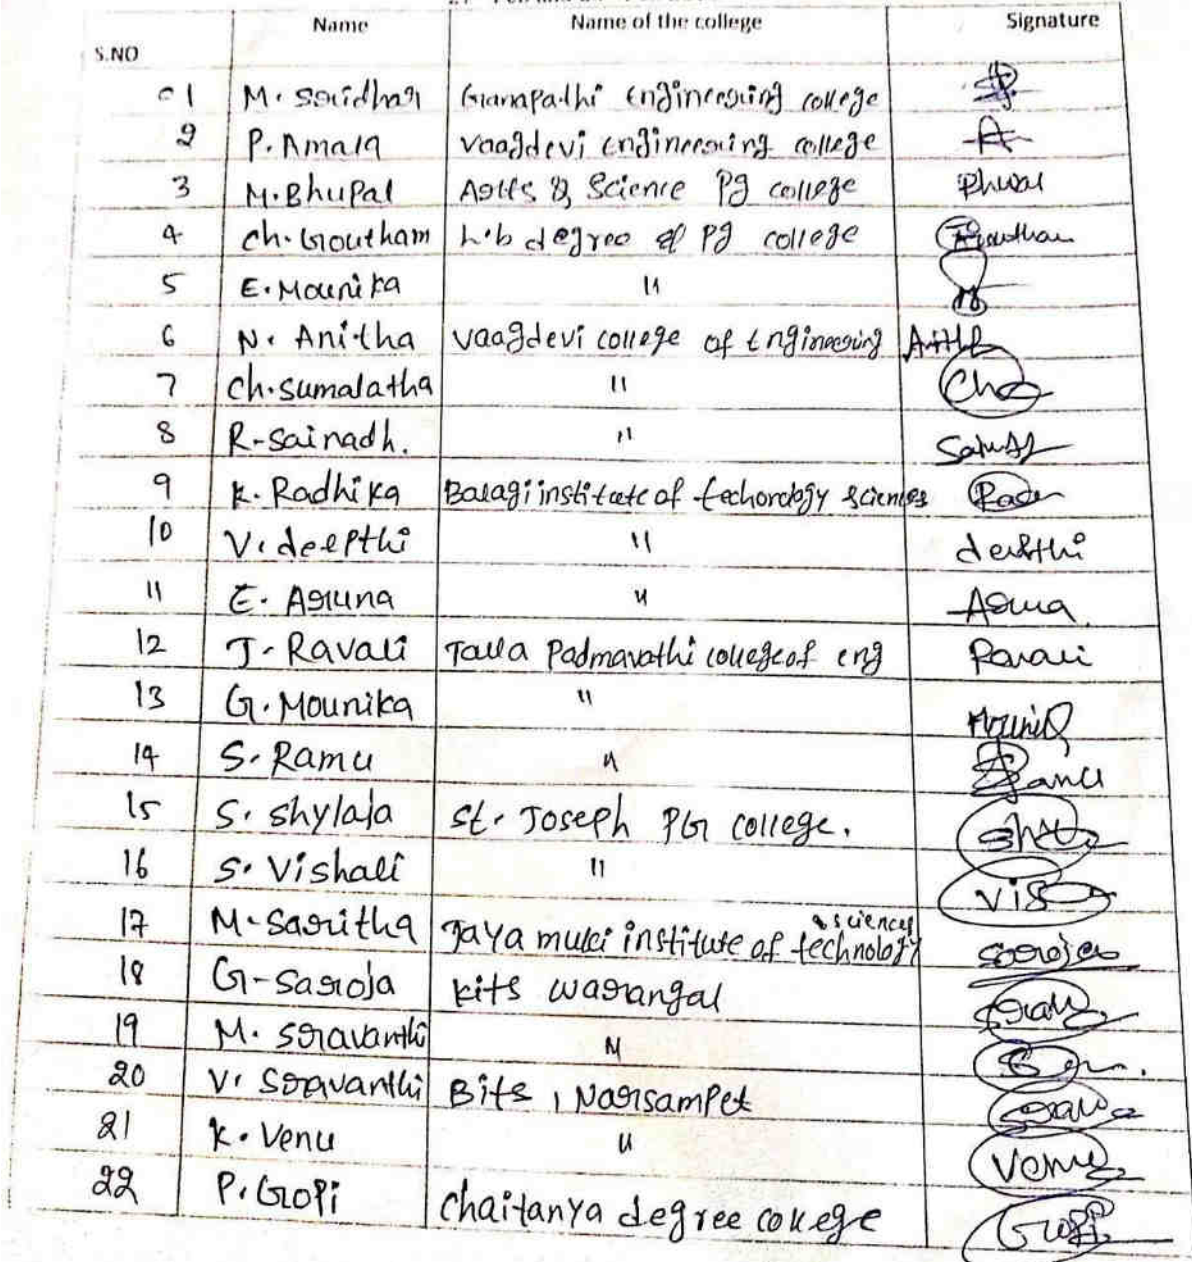 Name Name of the college Signature
S.NO
1 M. Sridhar Ganapathi Engineering college
2 P. Amala Vaagdevi Engineering college A
3 M. Bhupal Arts & Science Pg college
4 Ch. Goutham L.b degree & Pg college Goutham
5 E. Mounika "
6 N. Anitha Vaagdevi college of Engineering
7 Ch. Sumalatha " Cha
8 R-Sainadh. "
9 K. Radhika Balagi institute of techonology sciences
10 V. deepthi " deepthi
11 E. Aruna " Aruna
12 J. Ravali Talla Padmavathi college of eng Ravali
13 G. Mounika "
14 S. Ramu " Ramu
15 S. Shylaja St. Joseph PG college.
16 S. Vishali " Vis
17 M-Saritha Jaya muki institute of technology & sciences Saroja
18 G-Saroja Kits warangal
19 M. Sravanthi "
20 V. Sravanthi Bits, Narsampet
21 K. Venu " Venu
22 P. Gopi Chaitanya degree college Gopi